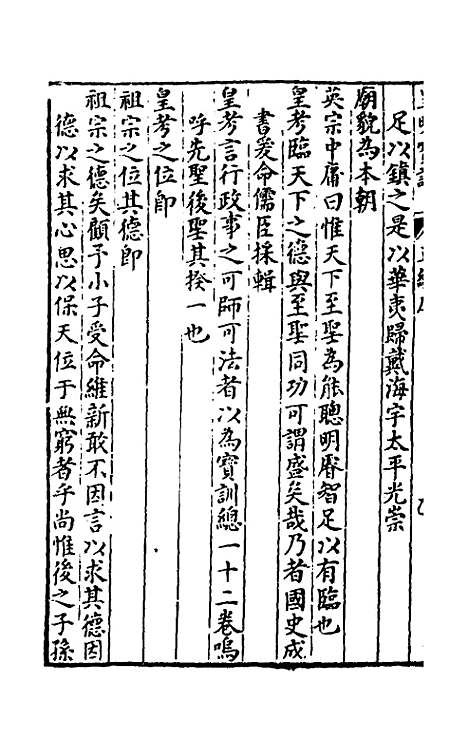 足以鎮之是以華夷歸戴海宇太平光崇
廟貌為本朝
英宗中庸曰惟天下至聖為能聰明睿智足以有臨也
皇考臨天下之德與至聖同功可謂盛矣哉乃者國史成
書爰命儒臣採輯
皇考言行政事之可師可法者以為寶訓總一十二卷嗚
呼先聖後聖其揆一也
皇考之位即
祖宗之位其德即
祖宗之德矣顧予小子受命維新敢不因言以求其德因
德以求其心思以保天位于無窮者乎尚惟後之子孫